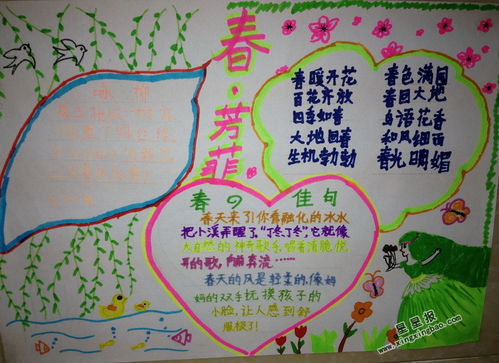 春·芳菲
咏 柳
春暖开花 春色满园
百花齐放 春回大地
四季如春 鸟语花香
大地回春 和风细雨
生机勃勃 春光明媚
春の佳句
春天来了!你看融化的冰水
把小溪弄醒了"丁冬、丁冬",它就像
大自然的神奇歌手,唱着清脆悦
耳的歌,向前奔流……
春天的风是轻柔的,像妈
妈的双手抚摸孩子的
小脸,让人感到舒
服极了!
星星报
www.xingxingbao.com